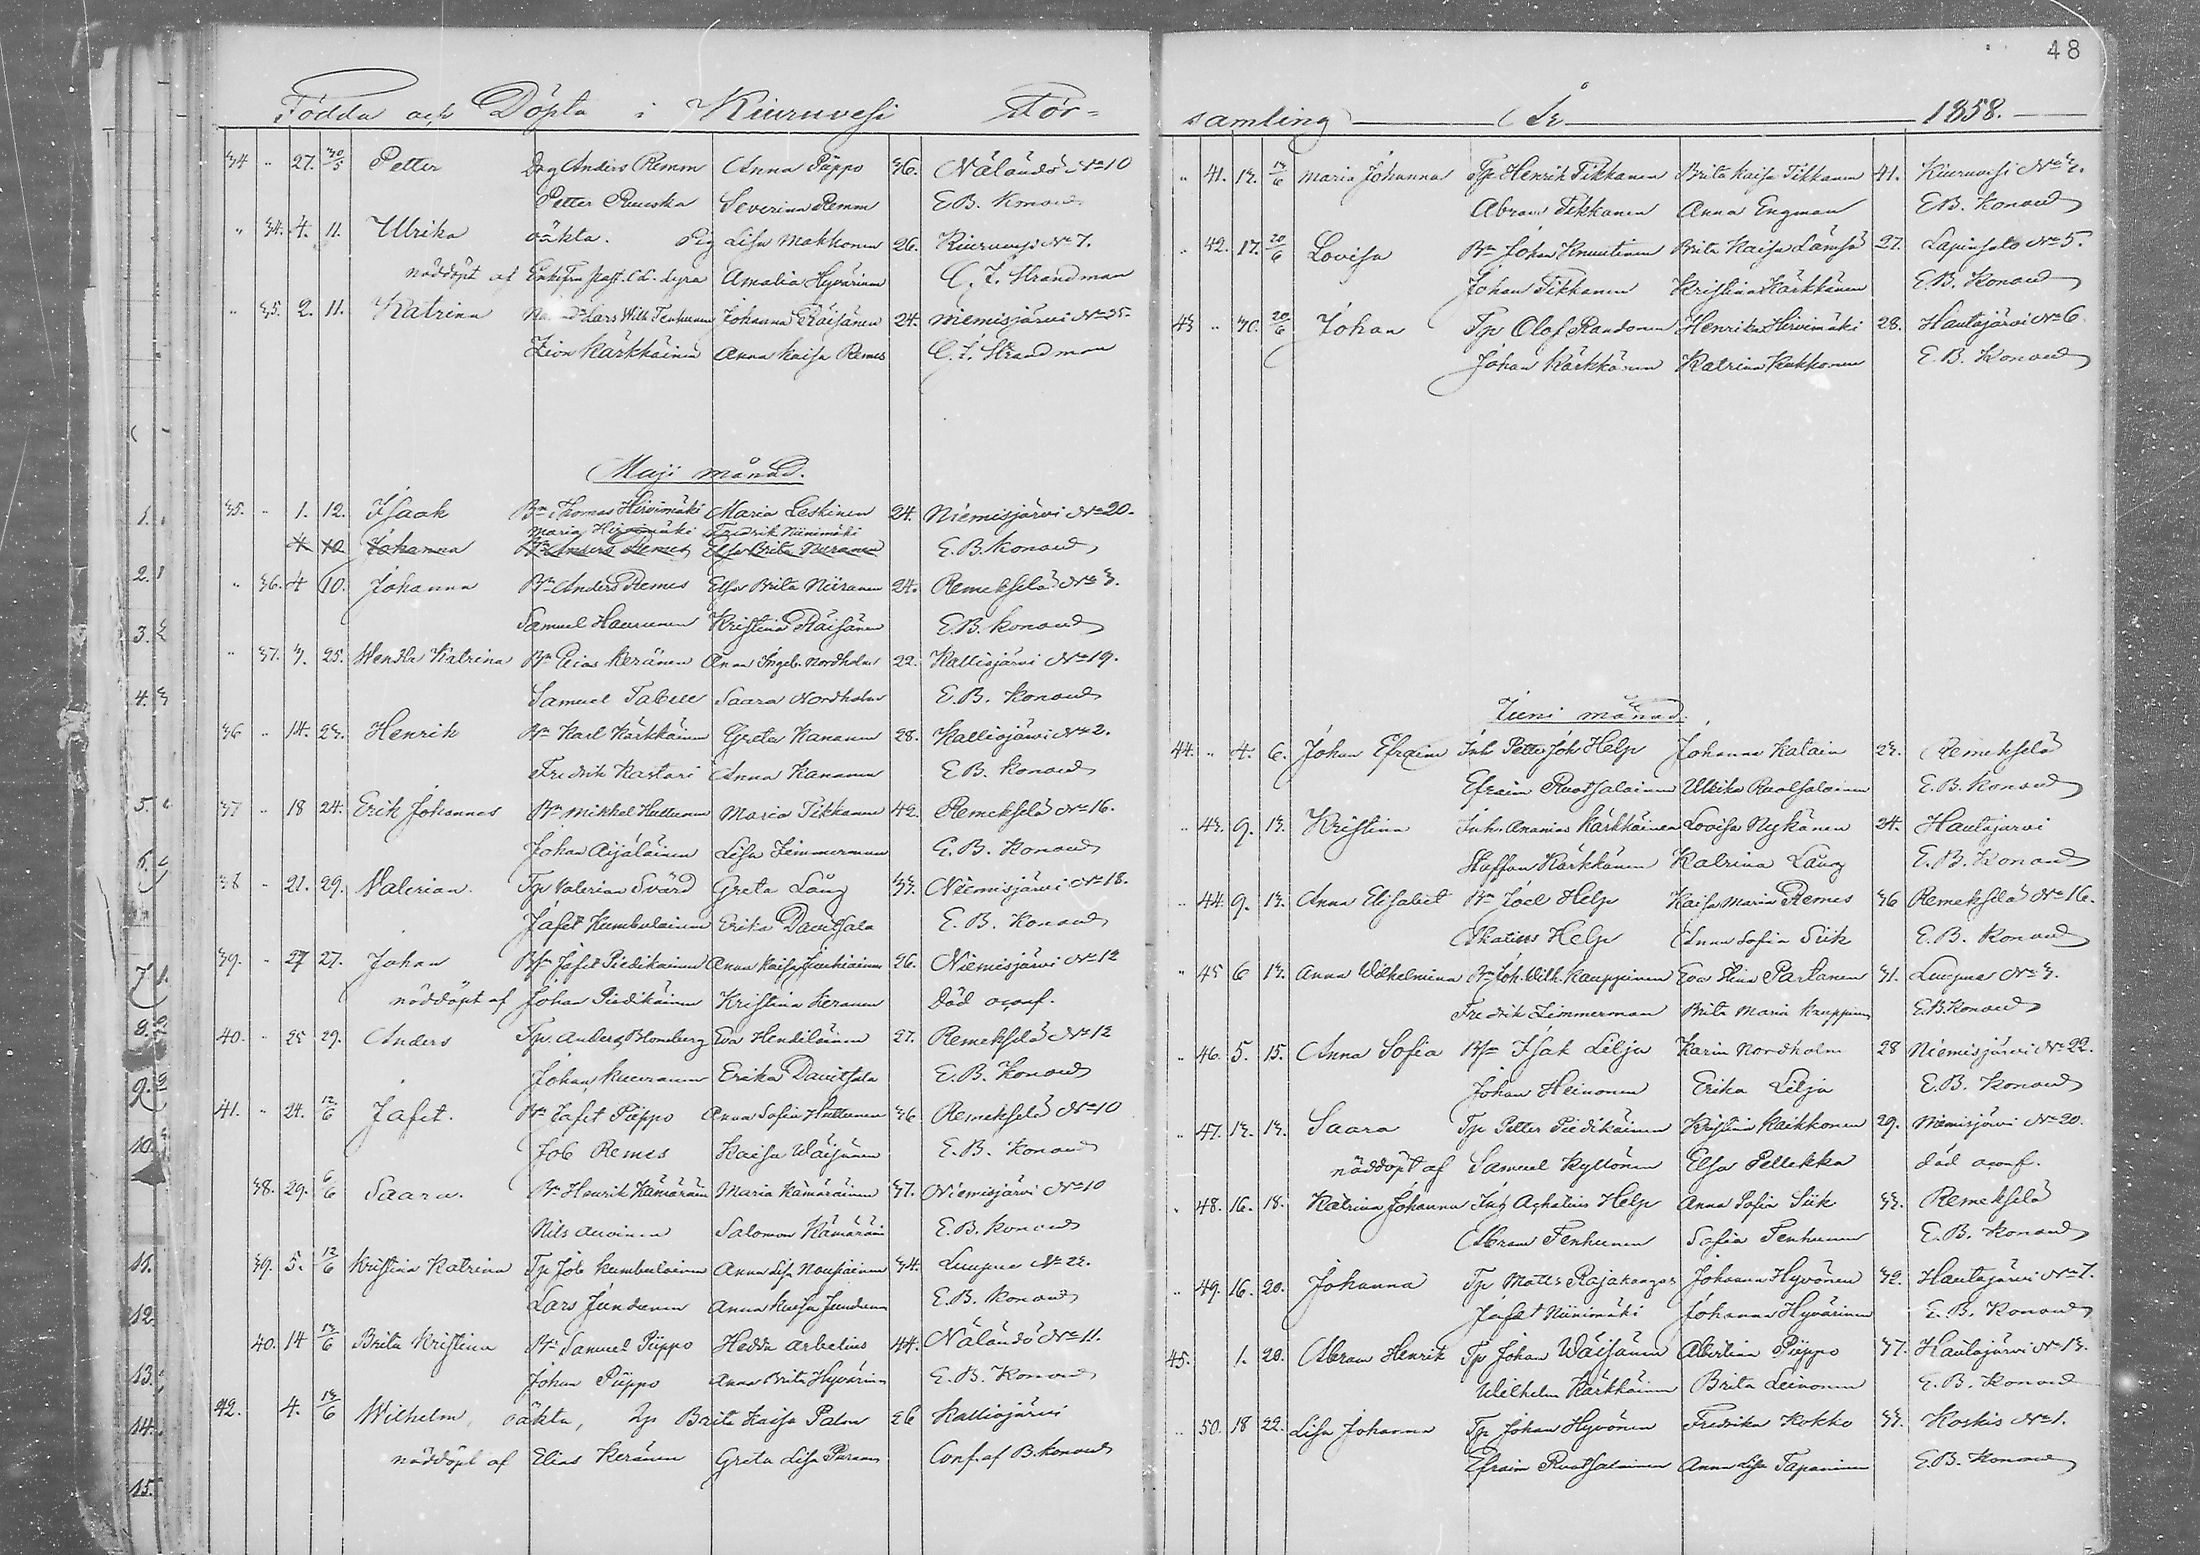 Födda och Döpta i Kiuruvesi För-
34 " 27. 30/5 Petter Drg Anders Remm Anna Piippo 36. Näländö No 10
Petter Severina Remm E.B. Konow
" 34. 4. 11. Ulrika oäkta. Pig Lisa Makkonen 26. Kiuruvesi No 7.
nöddöpt af Amalia Hyvärinen C. J. Strandman
" 35. 2. 11. Katrina Lars Wilh Tenhunen Johanna Räisänen 24. Niemisjärvi No 25.
Zion Kärkkäinen Anna Kaisa Remes C. J. Strandman
Maji månad.
35. " 1. 12. Isaak Bn Thomas Hirvimäki Maria Leskinen 24. Niemisjärvi No 20.
Maria Hirvimäki Fredrik Niinimäki
4 10 Johanna Bn Anders Remes Elsa Brita Niiranen E.B. Konow
" 36. 4 10. Johanna Bn Anders Remes Elsa Brita Niiranen 24. Remekselä No 3.
Samuel Haurunen Kristina Räisänen E.B. Konow
" 37. 3. 25. Wendla Katrina Bn Elias Keränen Anna Ingeb. Nordholm 22. Kalliojärvi No 19.
Samuel Tabell Saara Nordholm E.B. Konow
36 " 14. 23. Henrik Bn Karl Kärkkäinen Greta Kananen 28. Kalliojärvi No 2.
Fredrik Kastari Anna Kananen E.B. Konow
37 " 18 24. Erik Johannes Bn Mikkel Huttunen Maria Tikkanen 42. Remekselä No 16.
Johan Äijäläinen Lisa Zimmerman E.B. Konow
38 " 21. 29. Valerian. Tp Valerian Svärd Greta Lång 33. Niemisjärvi No 18.
Jafet Kumbulainen Erika Davidsala E.B. Konow
39. " 27 27. Johan Jafet Piedikäinen Anna Kaisa 26. Niemisjärvi No 12
nöddöpt af Johan Piedikäinen Kristina Keranen Död oconf.
40. " 25 29. Anders Tp. Anders Blomberg Eva Hendiläinen 27. Remekselä No 12
Johan Erika Davidsala E.B. Konow
41. " 24. 12/6 Jafet. Bn Jafet Piippo Anna Sofia Huttunen 36 Remekselä No 10
Job Remes Kaisa Wäisänen E.B. Konow
38. 29. 6/6 Saara. Bn Henrik Kämäräin Maria Kämäräinen 37. Niemisjärvi No 10
Nils Auvinen Salomon Kämäräin E.B. Konow
39. 5. 12/6 Kristina Katrina Tp Job Kumbulainen Anna Lisa Nousiainen 34. Luupua No 22.
Lars Jundunen Anna Kaisa Jundunen E.B. Konow
40. 14 13/6 Brita Kristina Bn Samuel Piippo Hedda Arbelius 44. Näländö No 11.
Johan Piippo Anna Brita Hyvärinen E.B. Konow
42. 4. 13/6 Wilhelm, oäkta, Brita Kaisa Palm 26 Kalliojärvi
nöddöpt af Elias Keränen Greta Lisa Conf. af B. Konow
48
samling År 1858.
" 41. 12. 13/6 Maria Johanna Tp Henrik Tikkanen Brita Kaisa Tikkanen 41. Kiuruvesi No 2.
Abram Tikkanen Anna Engman E.B. Konow
" 42. 17. 20/6 Lovisa Bn Johan Knuutinen Brita Kaisa Lämsä 27. Lapinsalo No 5.
Johan Tikkanen Kristina Kärkkänen E.B. Konow
43 " 30. 20/6 Johan Tp Olof Randonen Henrika Hirvimäki 28. Hautajärvi No 6.
Johan Kärkkänen Katrina Kukkonen E.B. Konow
Juni månad.
44. " 4. 6. Johan Efraim Inh Petter Joh Help Johanna Katain 23. Remekselä
Efraim Ruotsalainen Ulrika Ruotsalainen E.B. Konow
" 43. 9. 13. Kristina Inh. Ananias Kärkkäinen Lovisa Nykänen 24. Hautajärvi
Staffan Kärkkänen Katrina Lång E.B. Konow
" 44. 9. 13. Anna Elisabet Bn Joel Help Kaisa Maria Remes 36 Remekselä No 16.
Akatius Help Anna Sofia Siik E.B. Konow
" 45 6 13. Anna Wilhelmina Bn Joh. Wilh. Kauppinen Eva Stina Partanen 31. Luupua No 3.
Fredrik Zimmerman Brita Maria Kauppinen E.B. Konow
" 46. 5. 15. Anna Sofia Isak Lilja Karin Nordholm 28 Niemisjärvi No 22.
Johan Heinonen Erika Lilja E.B. Konow
" 47. 13. 13. Saara Tp Petter Piedikäinen Kristina Kaikkonen 29. Niemisjärvi No 20.
nöddöpt af Samuel Kyllönen Elsa Pellikka död oconf.
" 48. 16. 18. Katrina Johanna Inh Achatius Help Anna Sofia Siik 33. Remekselä
Abram Tenhunen Sofia Tenhunen E.B. Konow
" 49. 16. 20. Johanna Tp Matts Rajakangas Johanna Hyvönen 32. Hautajärvi No 7.
Jafet Niinimäki Johanna Hyvärinen E.B. Konow
45. 1. 20. Abram Henrik Tp Johan Wäisänen Albertina Piippo 37. Hautajärvi No 13.
Wilhelm Kärkkäinen Brita Leinonen E.B. Konow
" 50. 18 22. Lisa Johanna Tp Johan Hyvönen Fredrika Kokko 33. Koskis No 1.
Efraim Ruotsalainen Anna Lisa Tapaninen E.B. Konow